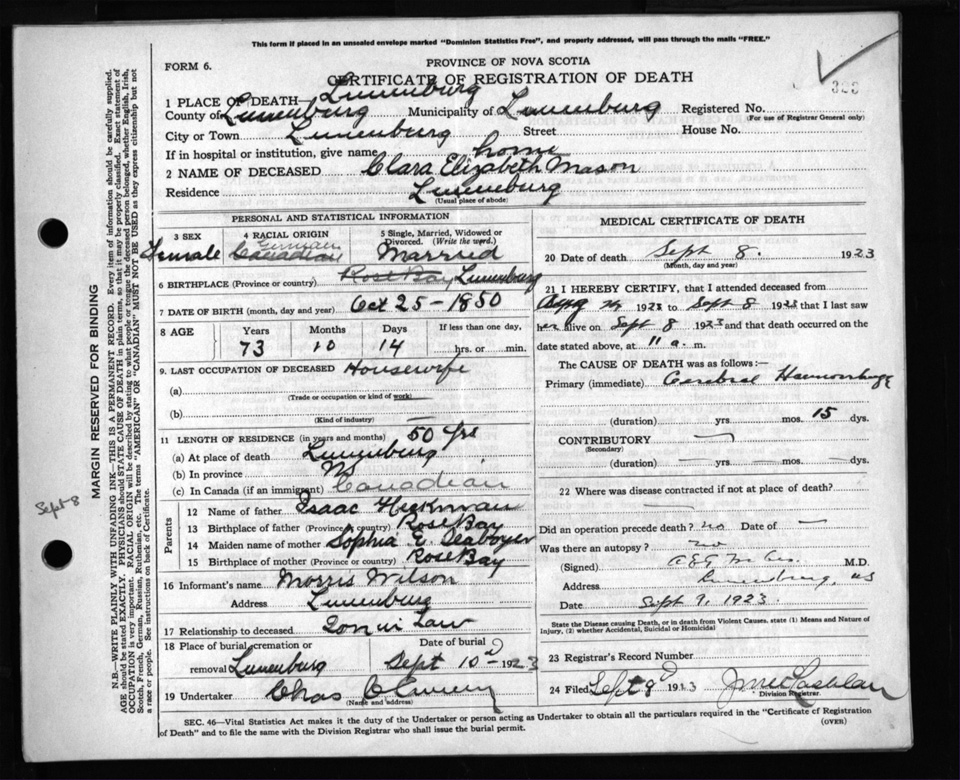 This form if placed in an unsealed envelope marked "Dominion Statistics Free", and properly addressed, will pass through the mails "FREE."
FORM 6.
PROVINCE OF NOVA SCOTIA
CERTIFICATE OF REGISTRATION OF DEATH
323
1 PLACE OF DEATH— Lunenburg
County of Lunenburg Municipality of Lunenburg Registered No.
(For use of Registrar General only)
City or Town Lunenburg Street House No.
If in hospital or institution, give name home
2 NAME OF DECEASED Clara Elizabeth Mason
Residence Lunenburg
(Usual place of abode)
PERSONAL AND STATISTICAL INFORMATION
3 SEX 4 RACIAL ORIGIN 5 Single, Married, Widowed or Divorced. (Write the word.)
Female German Canadian Married
6 BIRTHPLACE (Province or country) Rose Bay Lunenburg
7 DATE OF BIRTH (month, day and year) Oct 25 - 1850
8 AGE Years Months Days If less than one day,
73 10 14 hrs. or min.
9 LAST OCCUPATION OF DECEASED Housewife
(a)
(Trade or occupation or kind of work)
(b)
(Kind of industry)
11 LENGTH OF RESIDENCE (in years and months) 50 yrs
(a) At place of death Lunenburg
(b) In province NS
(c) In Canada (if an immigrant) Canadian
Parents
12 Name of father Isaac Hickman
13 Birthplace of father (Province or country) Rose Bay
14 Maiden name of mother Sophia E. Seaboyer
15 Birthplace of mother (Province or country) Rose Bay
16 Informant's name Morris Wilson
Address Lunenburg
17 Relationship to deceased Son in Law
18 Place of burial, cremation or removal Lunenburg Date of burial Sept 10 1923
19 Undertaker Chas
(Name and address)
MEDICAL CERTIFICATE OF DEATH
20 Date of death Sept 8. 1923
(Month, day and year)
21 I HEREBY CERTIFY, that I attended deceased from
Aug 24 1923 to Sept 8 1923 that I last saw
her alive on Sept 8 1923 and that death occurred on the
date stated above, at 11 a. m.
The CAUSE OF DEATH was as follows:—
Primary (immediate) Cerebral Haemorrhage
(duration) yrs mos. 15 dys.
CONTRIBUTORY —
(Secondary)
(duration) — yrs — mos. — dys.
22 Where was disease contracted if not at place of death?
—
Did an operation precede death? no Date of —
Was there an autopsy? no
(Signed) M.D.
Address Lunenburg, NS
Date Sept 9, 1923.
State the Disease causing Death, or in death from Violent Causes, state (1) Means and Nature of Injury, (2) whether Accidental, Suicidal or Homicidal
23 Registrar's Record Number
24 Filed Sept 8 1923 J McLachlan
Division Registrar.
SEC. 46—Vital Statistics Act makes it the duty of the Undertaker or person acting as Undertaker to obtain all the particulars required in the "Certificate of Registration
of Death" and to file the same with the Division Registrar who shall issue the burial permit.
(OVER)
MARGIN RESERVED FOR BINDING
Sept 8
N.B.—WRITE PLAINLY WITH UNFADING INK—THIS IS A PERMANENT RECORD. Every item of information should be carefully supplied.
AGE should be stated EXACTLY. PHYSICIANS should STATE CAUSE OF DEATH in plain terms, so that it may be properly classified. Exact statement of
OCCUPATION is very important. RACIAL ORIGIN will be described by stating to what people or tongue the deceased person belonged, whether English, Irish,
Scotch, French, German, Russian, Ruthenian, etc. The terms "AMERICAN" OR "CANADIAN" MUST NOT BE USED as they express citizenship but not
a race or people. See instructions on back of Certificate.